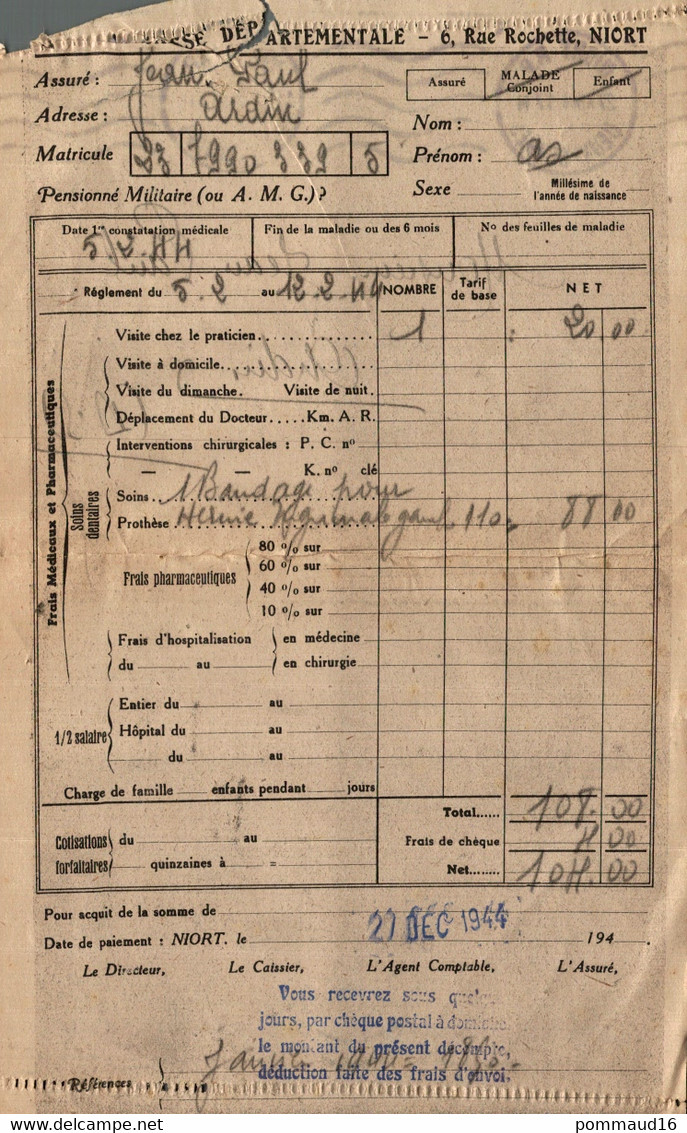 ARTEMENTALE – 6, Rue Rochette, NIORT
Assuré : Jean Paul
Adresse : Ardin
Matricule 23 7990 339 5
Pensionné Militaire (ou A. M. G.) ?
Assuré MALADE Conjoint Enfant
Nom :
Prénom : as
Sexe Millésime de l'année de naissance
Date 1re constatation médicale Fin de la maladie ou des 6 mois No des feuilles de maladie
5 2 44
Réglement du 5.2 au 12.2.44 NOMBRE Tarif de base NET
Frais Médicaux et Pharmaceutiques
Visite chez le praticien 1 20 00
Visite à domicile
Visite du dimanche. Visite de nuit.
Déplacement du Docteur ..... Km. A. R.
Interventions chirurgicales : P. C. no
— — K. no clé
Soins dentaires
Soins 1 Bandage pour
Prothèse Hernie 110 88 00
Frais pharmaceutiques
80 % sur
60 % sur
40 % sur
10 % sur
Frais d'hospitalisation en médecine
du au en chirurgie
1/2 salaire
Entier du au
Hôpital du au
du au
Charge de famille enfants pendant jours
Total...... 108. 00
Cotisations forfaitaires
du au Frais de chèque 4 00
quinzaines à = Net.... 104. 00
Pour acquit de la somme de
Date de paiement : NIORT, le 27 DEC 1944 194
Le Directeur, Le Caissier, L'Agent Comptable, L'Assuré,
Vous recevrez sous
jours, par chèque postal à
le montant du présent décompte,
déduction faite des frais d'envoi.
Références
pommaud16